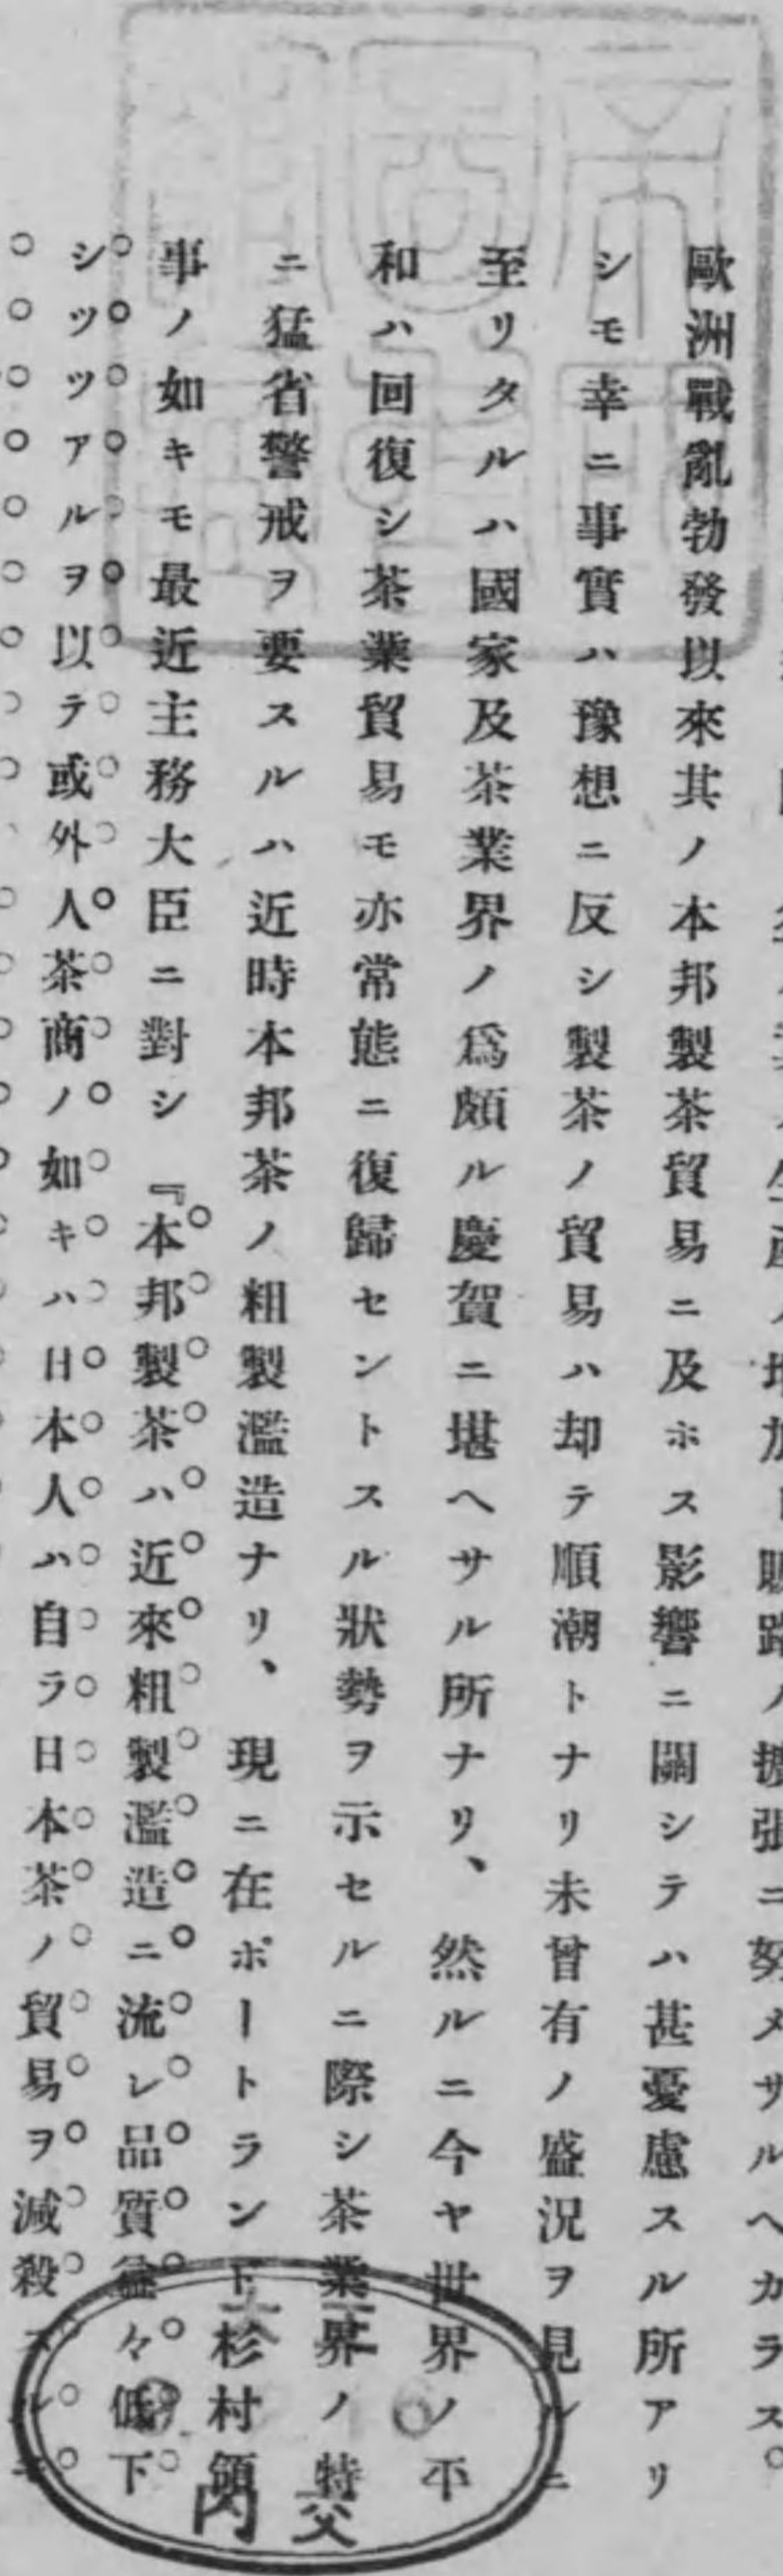 ノ擴張ニ努メサルヘカラス。
歐洲戰亂勃發以來其ノ本邦製茶貿易ニ及ホス影響ニ關シテハ甚憂慮スル所アリ
シモ幸ニ事實ハ豫想ニ反シ製茶ノ貿易ハ却テ順潮トナリ未曾有ノ盛況ヲ見ルニ
至リタルハ國家及茶業界ノ爲頗ル慶賀ニ堪ヘサル所ナリ、然ルニ今ヤ世界ノ平
和ハ回復シ茶業貿易モ亦常態ニ復歸セントスル狀勢ヲ示セルニ際シ茶業界ノ特
ニ猛省警戒ヲ要スルハ近時本邦茶ノ粗製濫造ナリ、現ニ在ポートランド杉村領
事ノ如キモ最近主務大臣ニ對シ『本邦製茶ハ近來粗製濫造ニ流レ品質益々低下
シツツアルヲ以テ或外人茶商ノ如キハ日本人ハ自ラ日本茶ノ貿易ヲ減殺スルモ
內交